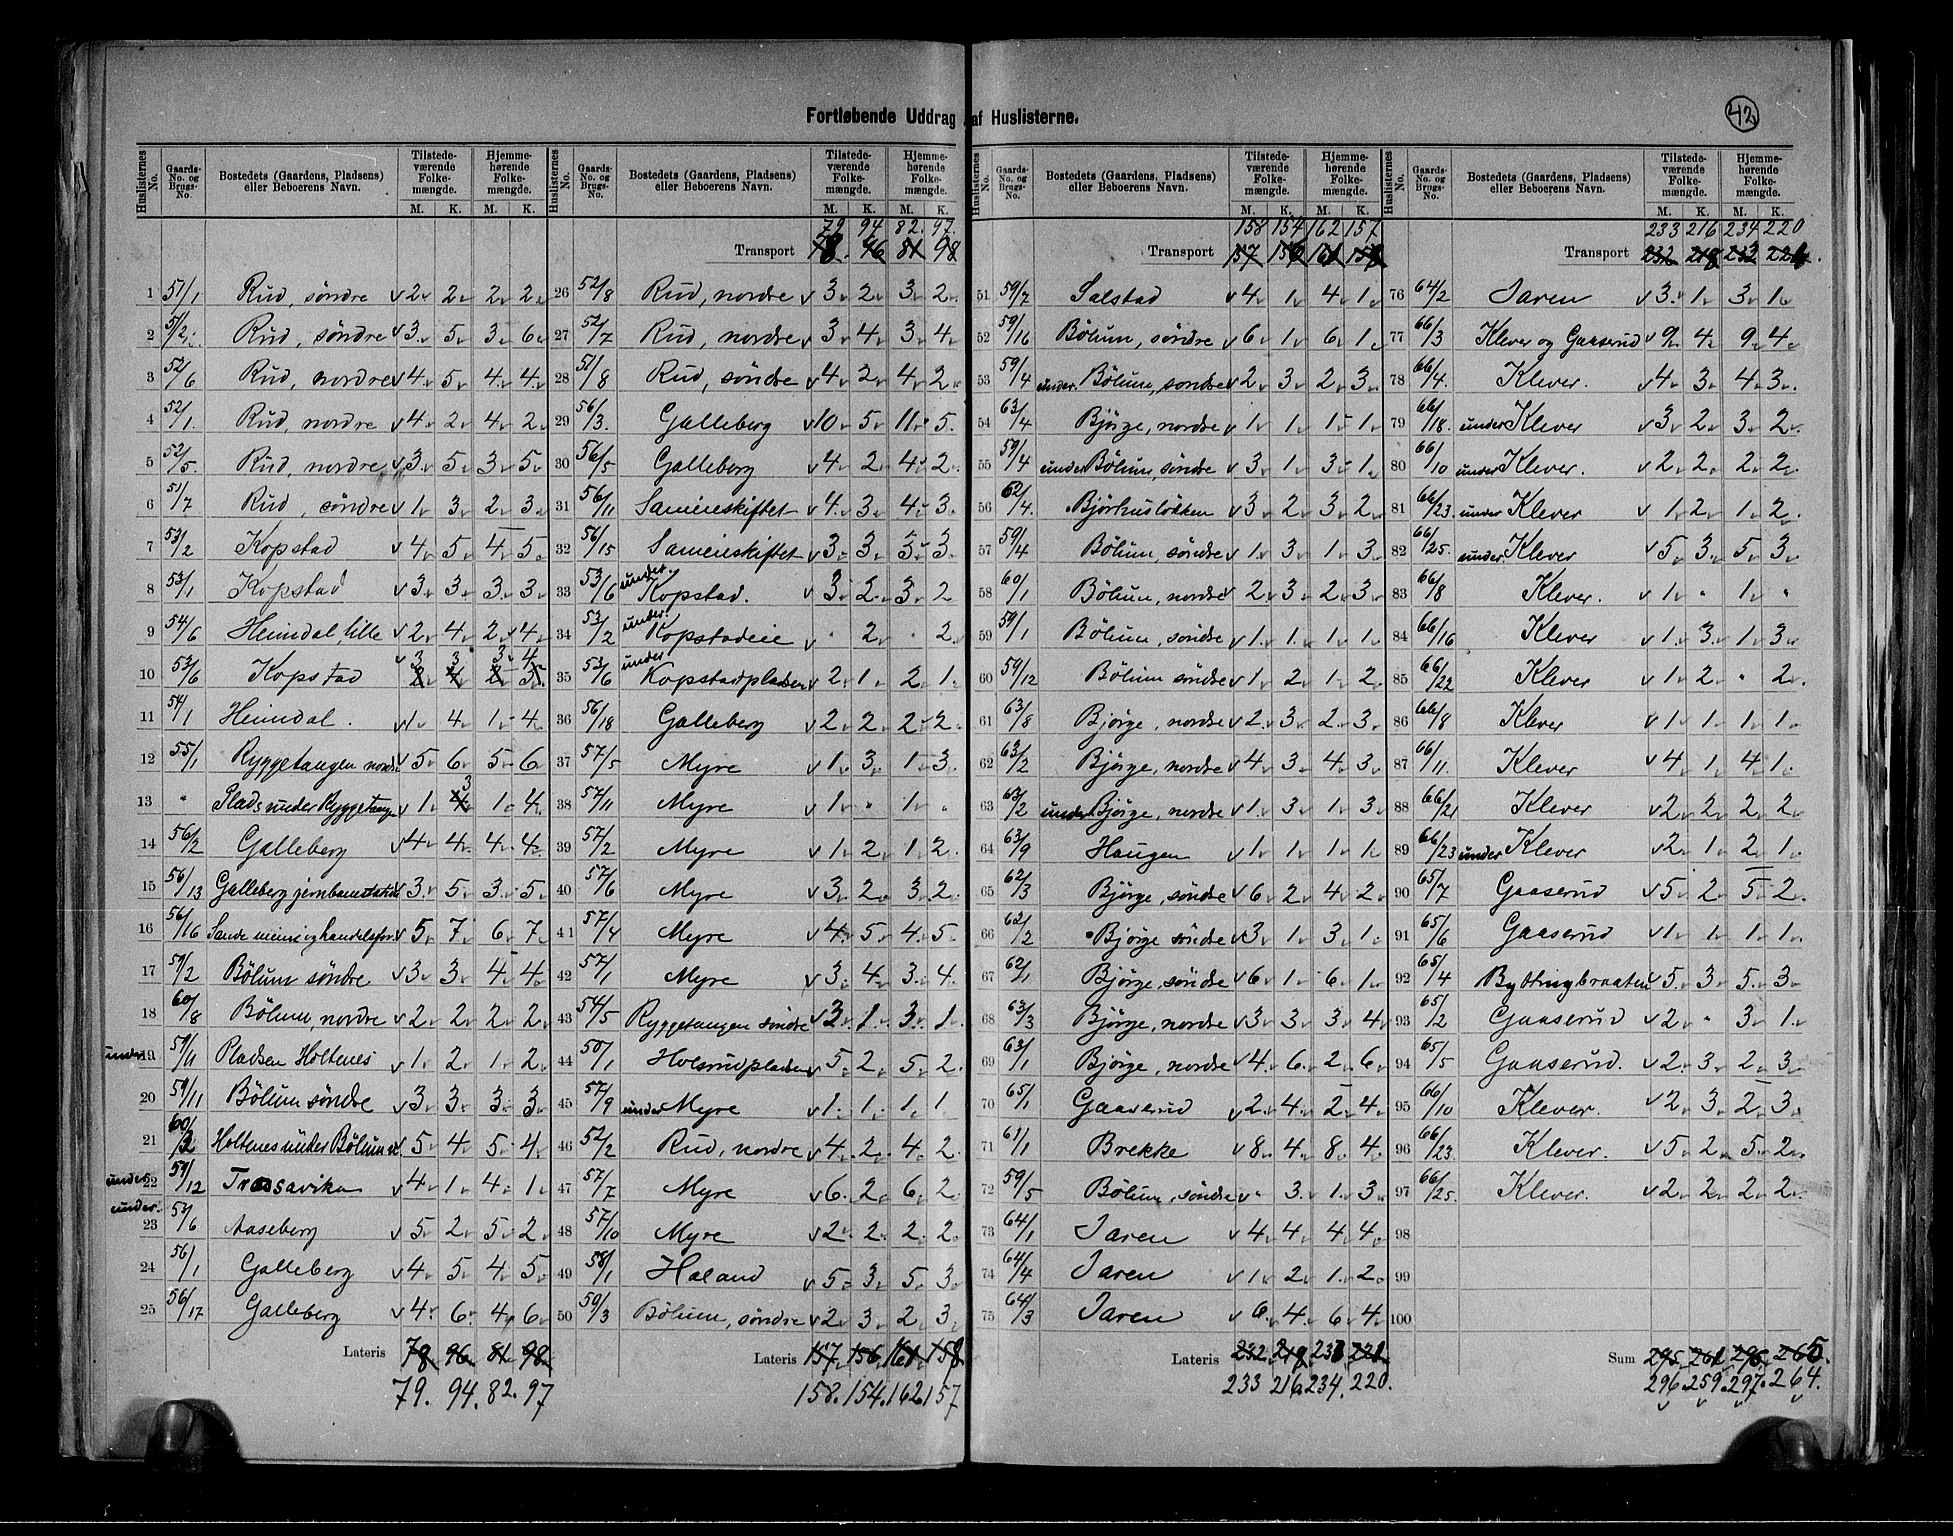 42
Fortløbende Uddrag af Huslisterne.
Huslisternes No. Gaards-No. og Brugs-No. Bostedets (Gaardens, Pladsens) eller Beboerens Navn. Tilstedeværende Folkemængde. M. K. Hjemmehørende Folkemængde. M. K.
1 51/1 Rud, søndre 2 2 2 2
2 51/2 Rud, søndre 3 5 3 6
3 52/6 Rud, nordre 4 5 4 4
4 52/1 Rud, nordre 4 2 4 2
5 52/5 Rud, nordre 3 5 3 5
6 51/7 Rud, søndre 1 3 2 3
7 53/2 Kopstad 4 5 4 5
8 53/1 Kopstad 3 3 3 3
9 54/6 Heimdal lille 2 4 2 4
10 53/6 Kopstad 3 3 3 4
11 54/1 Heimdal. 1 4 1 4
12 55/1 Ryggetangen nordr. 5 6 5 6
13 " Plads under Ryggetange 1 3 1 4
14 56/2 Galleberg 4 4 4 4
15 56/13 Galleberg jernbanestation 3 5 3 5
16 56/16 Sande meieri og handelsfor. 5 7 6 7
17 59/2 Bølum søndre 3 3 4 4
18 60/8 Bølum, nordre 2 2 2 2
19 under 59/11 Pladsen Holtenes 1 2 1 2
20 59/11 Bølum søndre 3 3 3 3
21 60/3 Holtenes under Bølum n 5 4 5 4
22 under 59/12 Trosavika 4 1 4 1
23 under 53/6 Aaseberg 5 2 5 2
24 56/1 Galleberg 4 5 4 5
25 56/17 Galleberg 4 6 4 6
Lateris 78 96 81 98
79. 94. 82. 97
Huslisternes No. Gaards-No. og Brugs-No. Bostedets (Gaardens, Pladsens) eller Beboerens Navn. Tilstedeværende Folkemængde. M. K. Hjemmehørende Folkemængde. M. K.
79 94 82. 97.
Transport 78. 96 81 98
26 52/8 Rud, nordre 3 2 3 2
27 52/7 Rud, nordre 3 4 3 4
28 51/8 Rud, søndre 4 2 4 2
29 56/3 Galleberg 10 5 11 5
30 56/5 Galleberg 4 2 4 2
31 56/11 Sameieskiftet 4 3 4 3
32 56/15 Sameieskiftet 3 3 3 3
33 53/6 under Kopstad. 3 2 3 2
34 53/2 under Kopstadeie " 2 " 2
35 53/6 under Kopstadpladsen 2 1 2 1
36 56/18 Galleberg 2 2 2 2
37 57/5 Myre 1 3 1 3
38 57/11 Myre 1 " 1 "
39 57/2 Myre 1 2 1 2
40 57/6 Myre 3 2 3 2
41 57/4 Myre 4 5 4 5
42 57/1 Myre 3 4 3 4
43 54/5 Ryggetangen søndre 3 1 3 1
44 50/1 Holsrudpladsen 5 2 5 2
45 57/9 under Myre 1 1 1 1
46 52/2 Rud, nordre 4 2 4 2
47 57/7 Myre 6 2 6 2
48 57/10 Myre 2 2 2 2
49 58/1 Haland 5 3 5 3
50 59/3 Bølum, søndre 2 3 2 3
Lateris 157 156 161 158
158. 154. 162. 157
Huslisternes No. Gaards-No. og Brugs-No. Bostedets (Gaardens, Pladsens) eller Beboerens Navn. Tilstedeværende Folkemængde. M. K. Hjemmehørende Folkemængde. M. K.
158 154 162 157
Transport 157 156 161 158
51 59/7 Salstad 4 1 4 1
52 59/16 Bølum, søndre 6 1 6 1
53 59/4 under Bølum, søndre 2 3 2 3
54 63/4 Bjørge, nordre 1 1 1 1
55 59/4 under Bølum, søndre 3 1 3 1
56 62/4 Bjørhusløkken 3 2 3 2
57 59/4 Bølum, søndre 1 3 1 3
58 60/1 Bølum, nordre 2 3 2 3
59 59/1 Bølum, søndre 1 1 1 1
60 59/12 Bølum søndre 1 2 1 2
61 63/8 Bjørge, nordre 2 3 2 3
62 63/2 Bjørge, nordre 4 3 4 3
63 63/2 under Bjørge, nordre 1 3 1 3
64 63/9 Haugen 1 1 1 1
65 62/3 Bjørge, søndre 6 2 4 2
66 62/2 Bjørge søndre 3 1 3 1
67 62/1 Bjørge, søndre 6 1 6 1
68 63/3 Bjørge, nordre 3 3 3 4
69 63/1 Bjørge, nordre 4 6 2 6
70 65/1 Gaaserud 2 4 2 4
71 61/1 Brekke 8 4 8 4
72 59/5 Bølum, søndre " 3 1 3
73 64/1 Jaren 4 4 4 4
74 64/4 Jaren 1 2 1 2
75 64/3 Jaren 6 4 6 4
Lateris 232 218 233 221
233 216 234. 220.
Huslisternes No. Gaards-No. og Brugs-No. Bostedets (Gaardens, Pladsens) eller Beboerens Navn. Tilstedeværende Folkemængde. M. K. Hjemmehørende Folkemængde. M. K.
233 216 234 220
Transport 232 218 233 221.
76 64/2 Jaren 3 1 3 1
77 66/3 Klever og Gaaserud 9 4 9 4
78 66/4 Klever. 4 3 4 3
79 66/18 under Klever 3 2 3 2
80 66/10 under Klever. 2 2 2 2
81 66/23 under Klever 1 2 1 2
82 66/25 under Klever 5 3 5 3
83 66/8 Klever. 1 " 1 "
84 66/16 Klever 1 3 1 3
85 66/22 Klever 1 2 " 2
86 66/8 Klever 1 1 1 1
87 66/11 Klever 4 1 4 1
88 66/21 Klever 2 2 2 2
89 66/23 under Klever 2 1 2 1
90 65/7 Gaaserud 5 2 5 2
91 65/6 Gaaserud 1 1 1 1
92 65/4 Byttingbraaten 5 3 5 3
93 65/2 Gaaserud 2 " 3 1
94 65/5 Gaaserud. 2 3 2 3
95 66/10 Klever. 2 3 2 3
96 66/23 Klever. 5 2 5 2
97 66/25 Klever. 2 2 2 2
98
99
100
Sum 295 261 296 265.
296. 259. 297. 264.